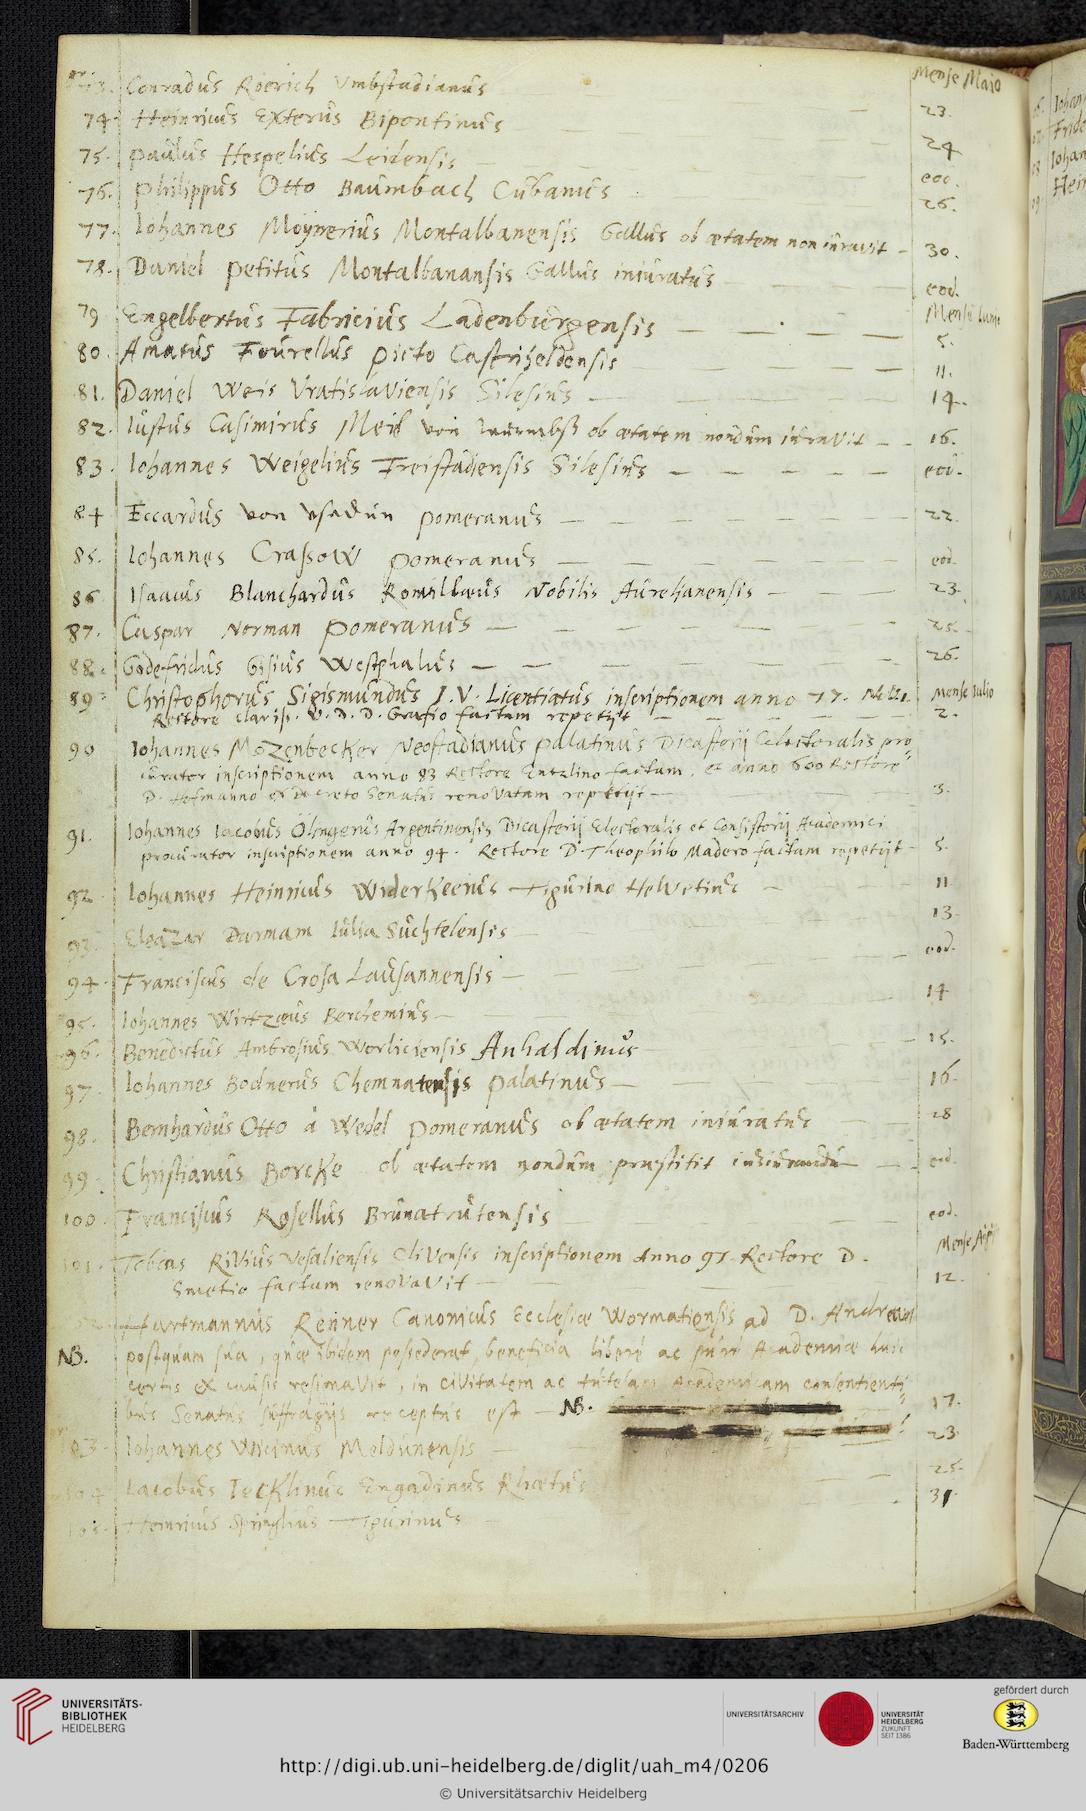 Mense Maio
73. Conradus Röerich Vmbstadianus 23.
74. Heinricus Exterus Bipontinus 24
75. Paulus Hespelius Leidensis eod.
76. Philippus Otto Baumbach Cubanus 26.
77. Iohannes Moynerius Montalbanensis Gallus ob ætatem non iuravit 30.
78. Daniel Petitus Montalbanansis Gallus iniuratus eod.
Mense Iunio
79 Engelbertus Fabricius Ladenburgensis 5.
80. Amatus Fourellus Picto Castriheldensis 11.
81. Daniel Weis Vratislaviensis Silesius 14.
82. Iustus Casimirus von ob ætatem nondum iuravit 16.
83. Iohannes Weigelius Freistadiensis Silesius eod.
84 Eccardus von Vsedun Pomeranus 22.
85. Iohannes Crassow Pomeranus eod.
86 Isaacus Blanchardus Romillæus Nobilis Aurelianensis 23.
87. Caspar Norman Pomeranus 25.
88. Godefridus Gisius Westphalus 26.
89 Christophorus Sigismundus I. V. Licentiatus inscriptionem anno 77. Mense Iulio
Rectore claris. V. D. D. Grafio factam repetijt 2.
90 Iohannes Mozenbecker Neostadianus Palatinus Dicasterij Electoralis pro
curator inscriptionem anno 83 Rectore Entzlino factam, et anno 600 Rectore
D. Hefmanno ex Decreto Senatus renovatam repetijt 3.
91. Iohannes Iacobus Ölingerus Argentinensis Dicasterij Electoralis et Consistorij Academici
procurator inscriptionem anno 94. Rectore D. Theophilo Madero factam repetijt 5.
92. Iohannes Heinricus Widerkeerus Tigurino Helvetius 11
93. Eleazar Darmam Iulia Süchtelensis 13.
94. Franciscus de Crosa Lausannensis eod.
95. Iohannes Wirtzæus Berchemius 14
96. Benedictus Ambrosius Worliciensis Anhaldinus 15.
97. Iohannes Bodnerus Chemnatensis Palatinus 16.
98. Bernhardus Otto à Wedel Pomeranus ob ætatem iniuratus 28
99. Christianus Borcke ob ætatem nondum præstitit iusiurandū eod.
100. Franciscus Rosellus Brunatrutensis eod.
Mense Aug
101. Tobias Rivius Vesaliensis Clivensis inscriptionem Anno 91 Rectore D.
Smetio factam renovavit 12.
102. Hartmannus Renner Canonicus Ecclesiæ Wormatiensis ad D. Andream
NB. postquam sua, quæ ibidem possederat, beneficia liberè ac purè Academiæ huic
certis ex causis resignavit, in civitatem ac tutelam Academicam consentienti
bus Senatus suffragijs receptus est NB. 17.
103. Iohannes Vicinus Meldunensis 23
104. Iacobus Iecklinus Engadinus Rhætus 25.
105. Heinricus Springlius Tigurinus 31.
UNIVERSITÄTS-
BIBLIOTHEK
HEIDELBERG
UNIVERSITÄTSARCHIV
UNIVERSITÄT
HEIDELBERG
ZUKUNFT
SEIT 1386
gefördert durch
Baden-Württemberg
http://digi.ub.uni-heidelberg.de/diglit/uah_m4/0206
© Universitätsarchiv Heidelberg